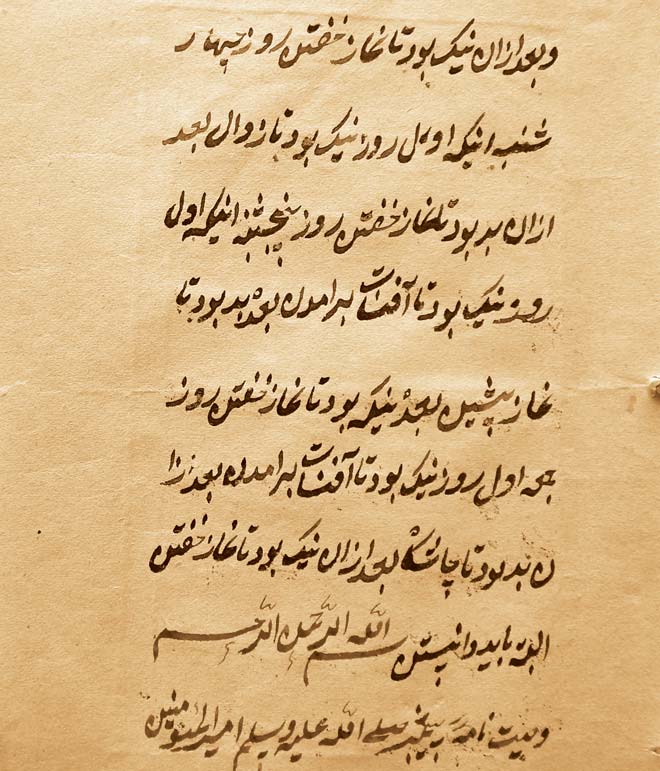 و بعد ازان نیک بود تا نماز خفتن روز چهار
شنبه انیکه اول روز نیک بود تا زوال بعد
ازان بد بود تا نماز خفتن روز پنجشنبه انیکه اول
روز نیک بود تا آفتاب برامدن بعده بد بود تا
نماز پیشین بعده نیکه بود تا نماز خفتن روز
جمعه اول روز نیک بود تا آفتاب برامدن بعد ازا
ن بد بود تا چاشتگاه بعد ازان نیک بود تا نماز خفتن
البته باید دانستن بسم الله الرَّحمن الرَّحیم
وصیت نامه پیغمبر صلے الله علیه وسلم امیر المؤمنین